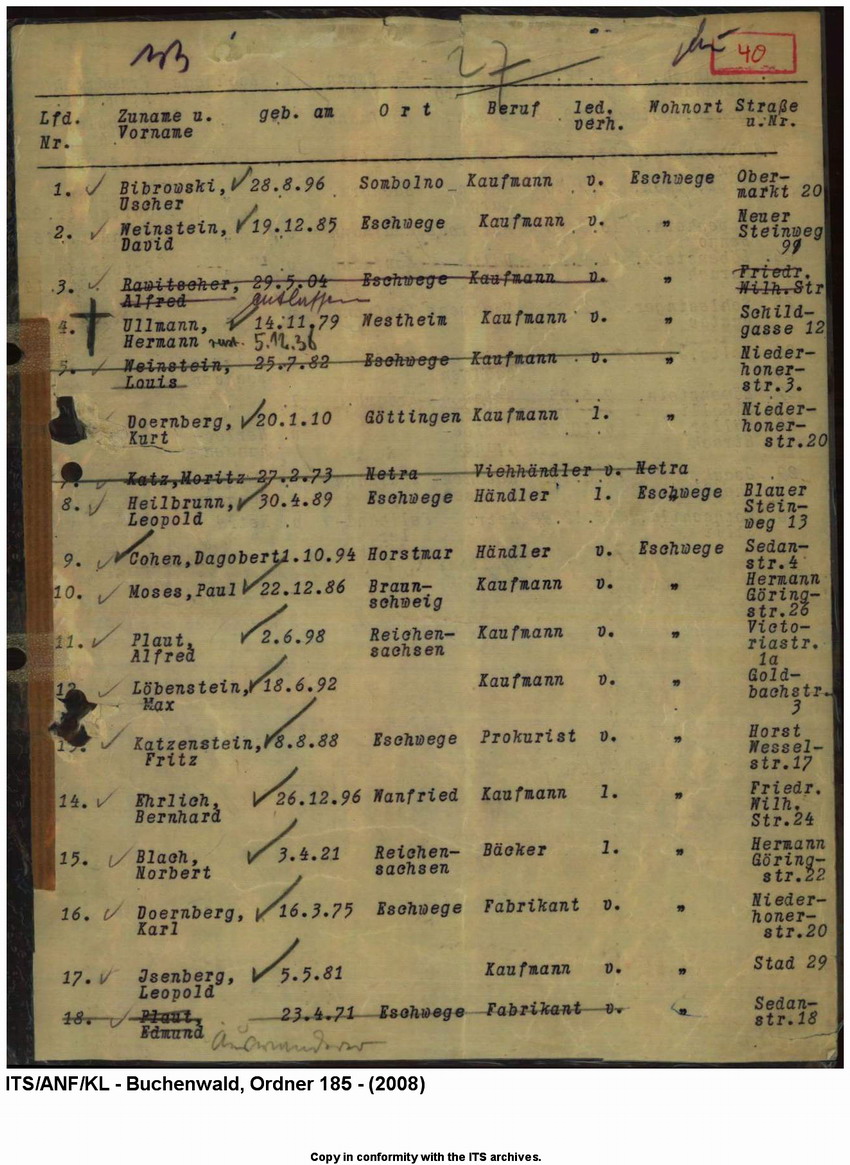 27
40
Lfd. Nr. Zuname u. Vorname geb. am Ort Beruf led. verh. Wohnort Straße u. Nr.
1. Bibrowski, 28.8.96 Sombolno Kaufmann v. Eschwege Ober-
Uscher markt 20
2. Weinstein, 19.12.85 Eschwege Kaufmann v. " Neuer
David Steinweg
91
3. Rawitscher, 29.5.04 Eschwege Kaufmann v. " Friedr.
Alfred entlassen Wilh.Str
4. Ullmann, 14.11.79 Westheim Kaufmann v. " Schild-
Hermann 5.12.38 gasse 12
5. Weinstein, 25.7.82 Eschwege Kaufmann v. " Nieder-
Louis honer-
str.3.
Doernberg, 20.1.10 Göttingen Kaufmann l. " Nieder-
Kurt honer-
str.20
7. Katz,Moritz 27.2.73 Netra Viehhändler v. Netra
8. Heilbrunn, 30.4.89 Eschwege Händler l. Eschwege Blauer
Leopold Stein-
weg 13
9. Cohen,Dagobert 1.10.94 Horstmar Händler v. Eschwege Sedan-
str.4
10. Moses,Paul 22.12.86 Braun- Kaufmann v. " Hermann
schweig Göring-
str.26
11. Plaut, 2.6.98 Reichen- Kaufmann v. " Victo-
Alfred sachsen riastr.
1a
12. Löbenstein, 18.6.92 Kaufmann v. " Gold-
Max bachstr.
3
13. Katzenstein, 8.8.88 Eschwege Prokurist v. " Horst
Fritz Wessel-
str.17
14. Ehrlich, 26.12.96 Wanfried Kaufmann l. " Friedr.
Bernhard Wilh.
Str.24
15. Blach, 3.4.21 Reichen- Bäcker l. " Hermann
Norbert sachsen Göring-
str.22
16. Doernberg, 16.3.75 Eschwege Fabrikant v. " Nieder-
Karl honer-
str.20
17. Jsenberg, 5.5.81 Kaufmann v. " Stad 29
Leopold
18. Plaut, 23.4.71 Eschwege Fabrikant v. " Sedan-
Edmund Auswanderer str.18
ITS/ANF/KL - Buchenwald, Ordner 185 - (2008)
Copy in conformity with the ITS archives.